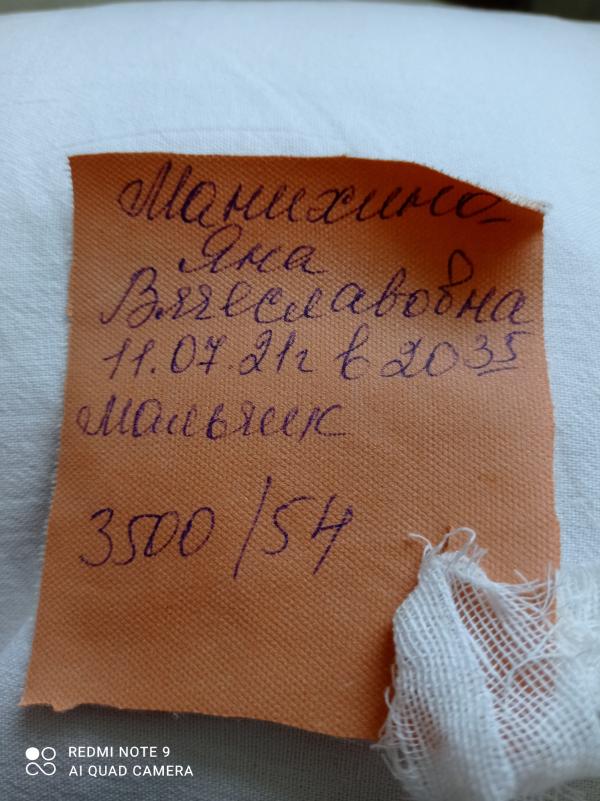 Манихина
Яна
Вячеславовна
11.07.21г в 20 35
Мальчик
3500/54
REDMI NOTE 9
AI QUAD CAMERA